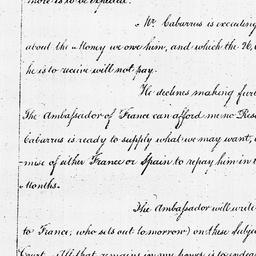 more is to be expected.
Mr Cabarrus is exceeding
about the Money we owe him, and which the 26,
he is to receive will not pay.
He declines making fur
The Ambassador of France can afford me no Res
Cabarrus is ready to supply what we may want,
mise of either France or Spain to repay him in
Months.
The Ambassador will write
to France, who sets out tomorrow) on these Subje
Court. All that remains in my power is to endea